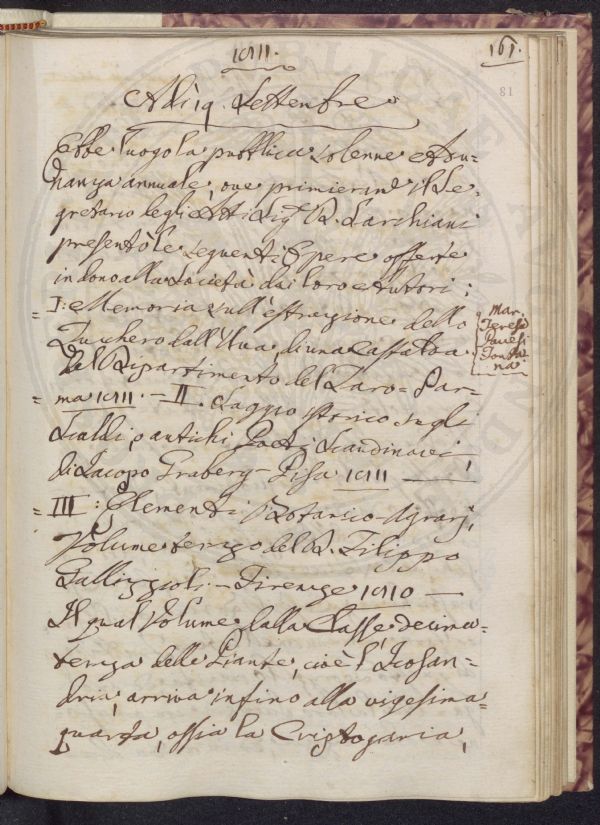 1811.
161.
81
Adì 9. Settembre
Ebbe luogo la pubblica solenne Adu-
nanza annuale, ove primierm.e il Se-
gretario degli Atti Sig.r D. Sarchiani
presentò le seguenti Opere offerte
in dono alla Società dai loro Autori:
= I: Memoria sull'estrazione dello
Zucchero dall'Uva, di una Cassata
del Dipartimento del Taro = Par-
= ma 1811. — II. Saggio istorico sugli
Scaldi, o antichi Poeti Scandinavi
di Jacopo Graberg — Pisa 1811 —
= III: Elementi Botanico-Agrarj,
Volume terzo del D. Filippo
Gallizzioli — Firenze 1810 —
Il qual Volume dalla Classe decima-
terza delle Piante, cioè l'Icosan-
dria, arriva infino alla vigesima-
quarta, ossia la Criptogamia,
Mar.
Teresa
Pavesi
Fonta
na